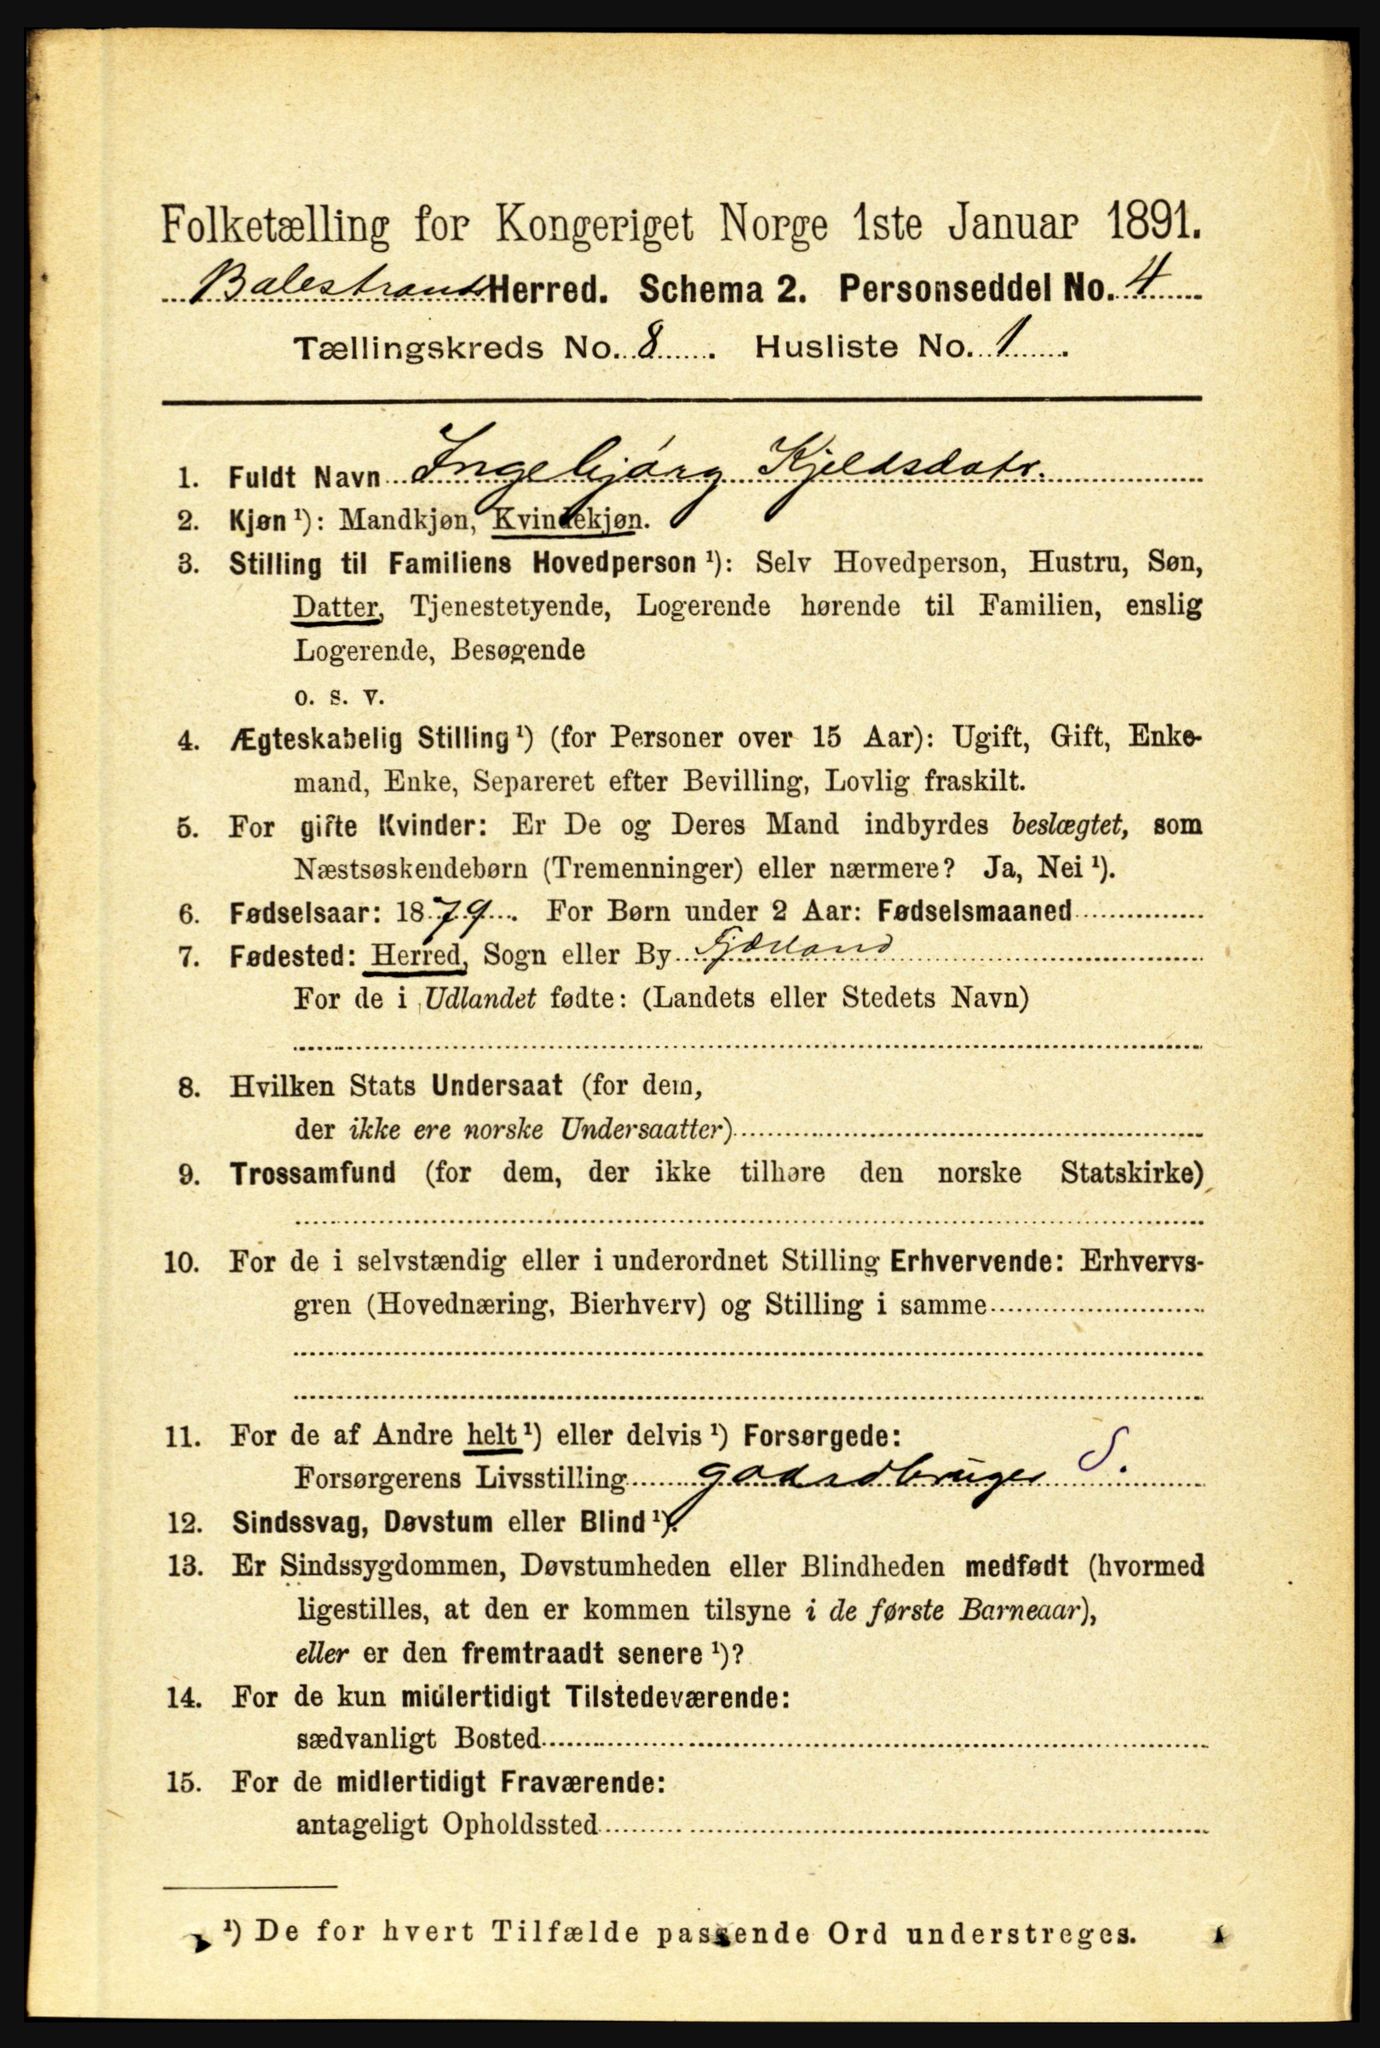 Folketælling for Kongeriget Norge 1ste Januar 1891.
Balestrand Herred. Schema 2. Personseddel No. 4
Tællingskreds No. 8. Husliste No. 1.
1. Fuldt Navn Ingebjørg Kjeldsdatr.
2. Kjøn ¹): Mandkjøn, Kvindekjøn.
3. Stilling til Familiens Hovedperson ¹): Selv Hovedperson, Hustru, Søn,
Datter, Tjenestetyende, Logerende hørende til Familien, enslig
Logerende, Besøgende
o. s. v.
4. Ægteskabelig Stilling ¹) (for Personer over 15 Aar): Ugift, Gift, Enke-
mand, Enke, Separeret efter Bevilling, Lovlig fraskilt.
5. For gifte Kvinder: Er De og Deres Mand indbyrdes beslægtet, som
Næstsøskendebørn (Tremenninger) eller nærmere? Ja, Nei ¹).
6. Fødselsaar: 1879. For Børn under 2 Aar: Fødselsmaaned
7. Fødested: Herred, Sogn eller By Fjærland
For de i Udlandet fødte: (Landets eller Stedets Navn)
8. Hvilken Stats Undersaat (for dem,
der ikke ere norske Undersaatter)
9. Trossamfund (for dem, der ikke tilhøre den norske Statskirke)
10. For de i selvstændig eller i underordnet Stilling Erhvervende: Erhvervs-
gren (Hovednæring, Bierhverv) og Stilling i samme
11. For de af Andre helt ¹) eller delvis ¹) Forsørgede:
Forsørgerens Livsstilling gaardbruger S.
12. Sindssvag, Døvstum eller Blind ¹).
13. Er Sindssygdommen, Døvstumheden eller Blindheden medfødt (hvormed
ligestilles, at den er kommen tilsyne i de første Barneaar),
eller er den fremtraadt senere ¹)?
14. For de kun midlertidigt Tilstedeværende:
sædvanligt Bosted
15. For de midlertidigt Fraværende:
antageligt Opholdssted
¹) De for hvert Tilfælde passende Ord understreges.